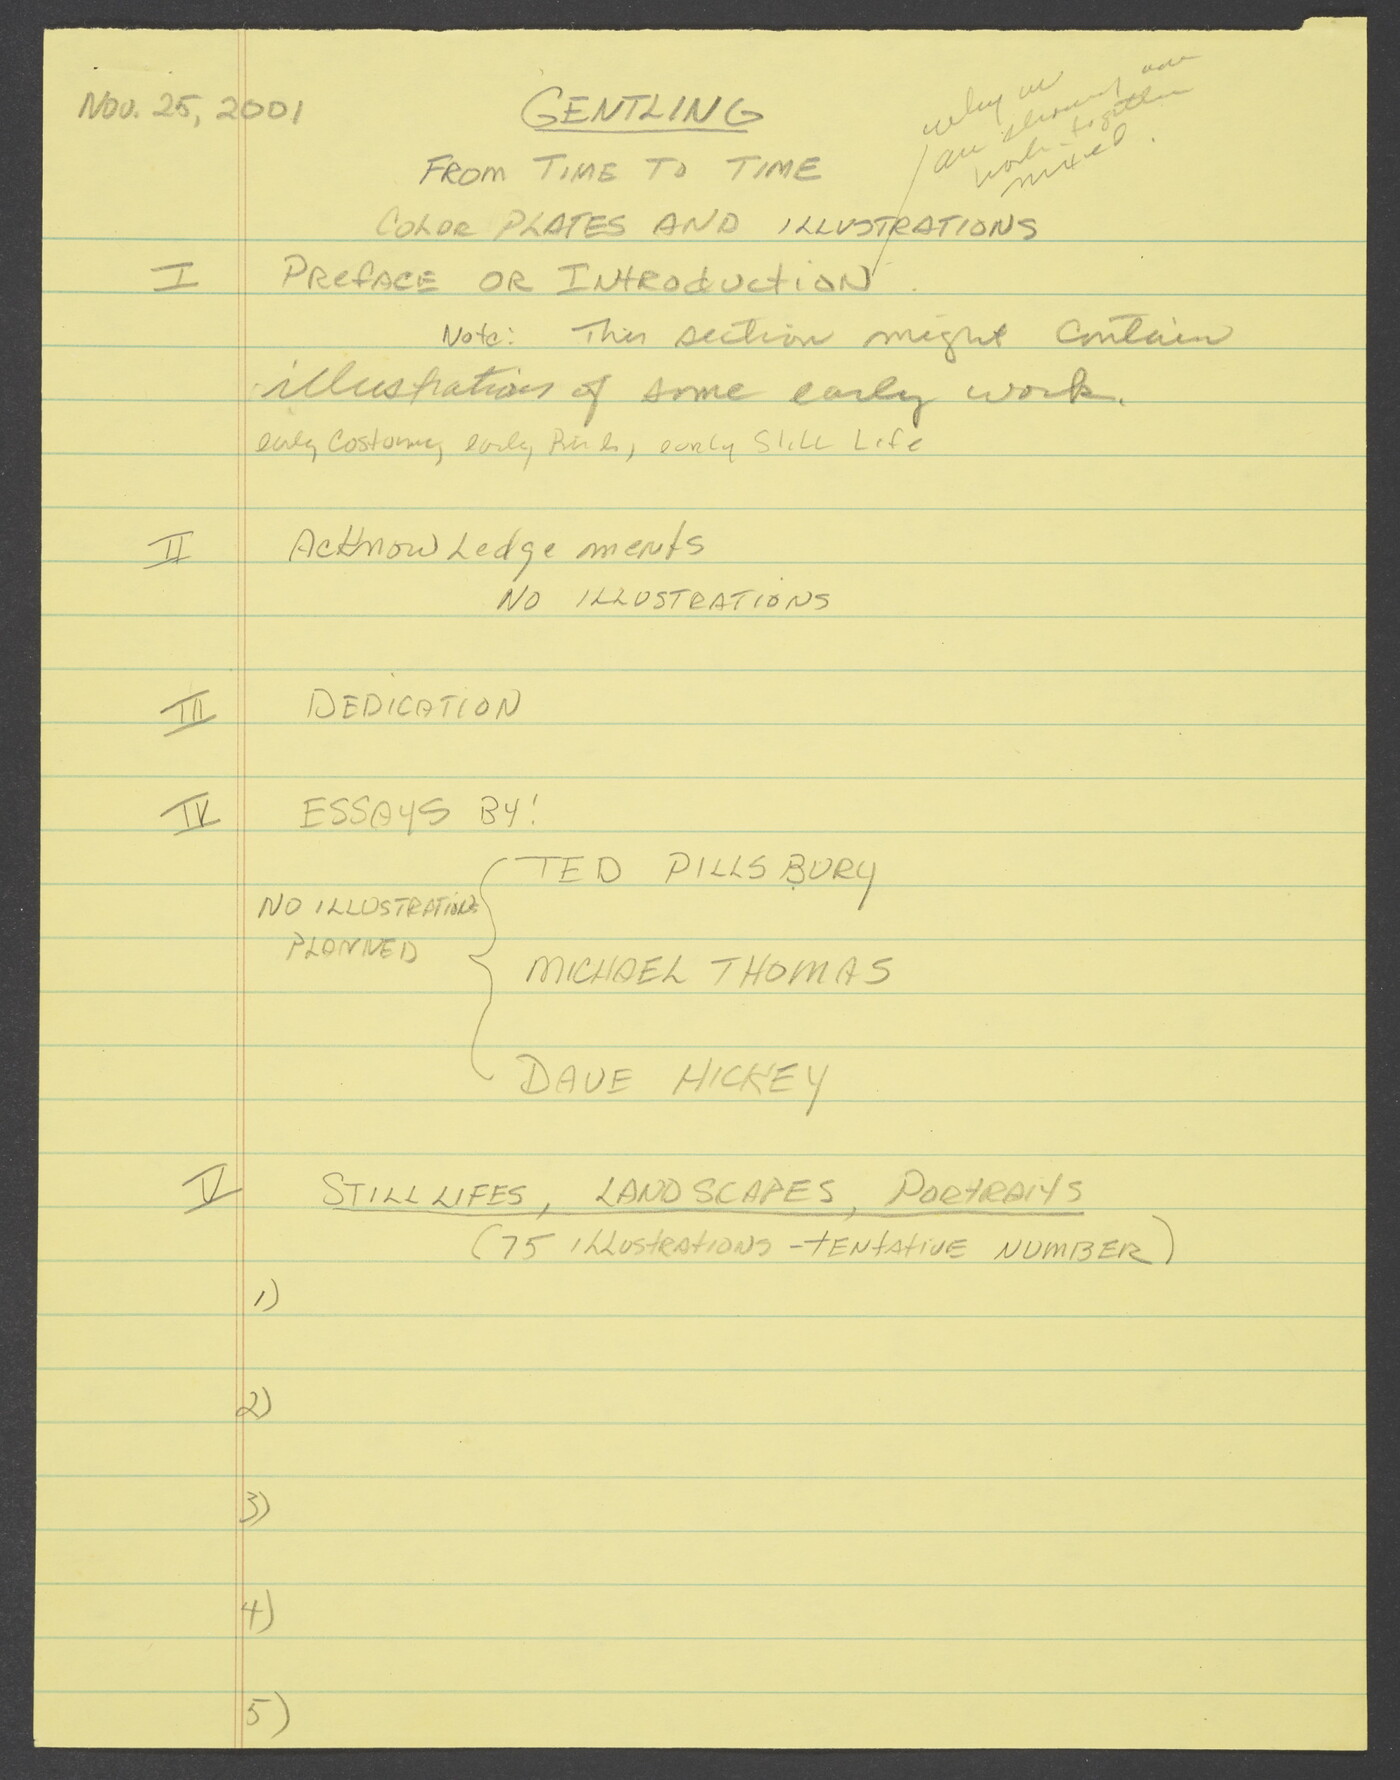 Nov. 25, 2001
GENTLING
why we
are showing our
work together
mixed.
FROM TIME TO TIME
COLOR PLATES AND ILLUSTRATIONS
I PREFACE OR INTRODUCTION
Note: This section might contain
illustrations of some early work.
early Costumes, early Birds, early Still Life
II Acknowledgements
NO ILLUSTRATIONS
III DEDICATION
IV ESSAYS BY:
TED PILLSBURY
NO ILLUSTRATIONS
PLANNED
MICHAEL THOMAS
DAVE HICKEY
V STILL LIFES, LANDSCAPES, PORTRAITS
(75 ILLUSTRATIONS - TENTATIVE NUMBER)
1)
2)
3)
4)
5)